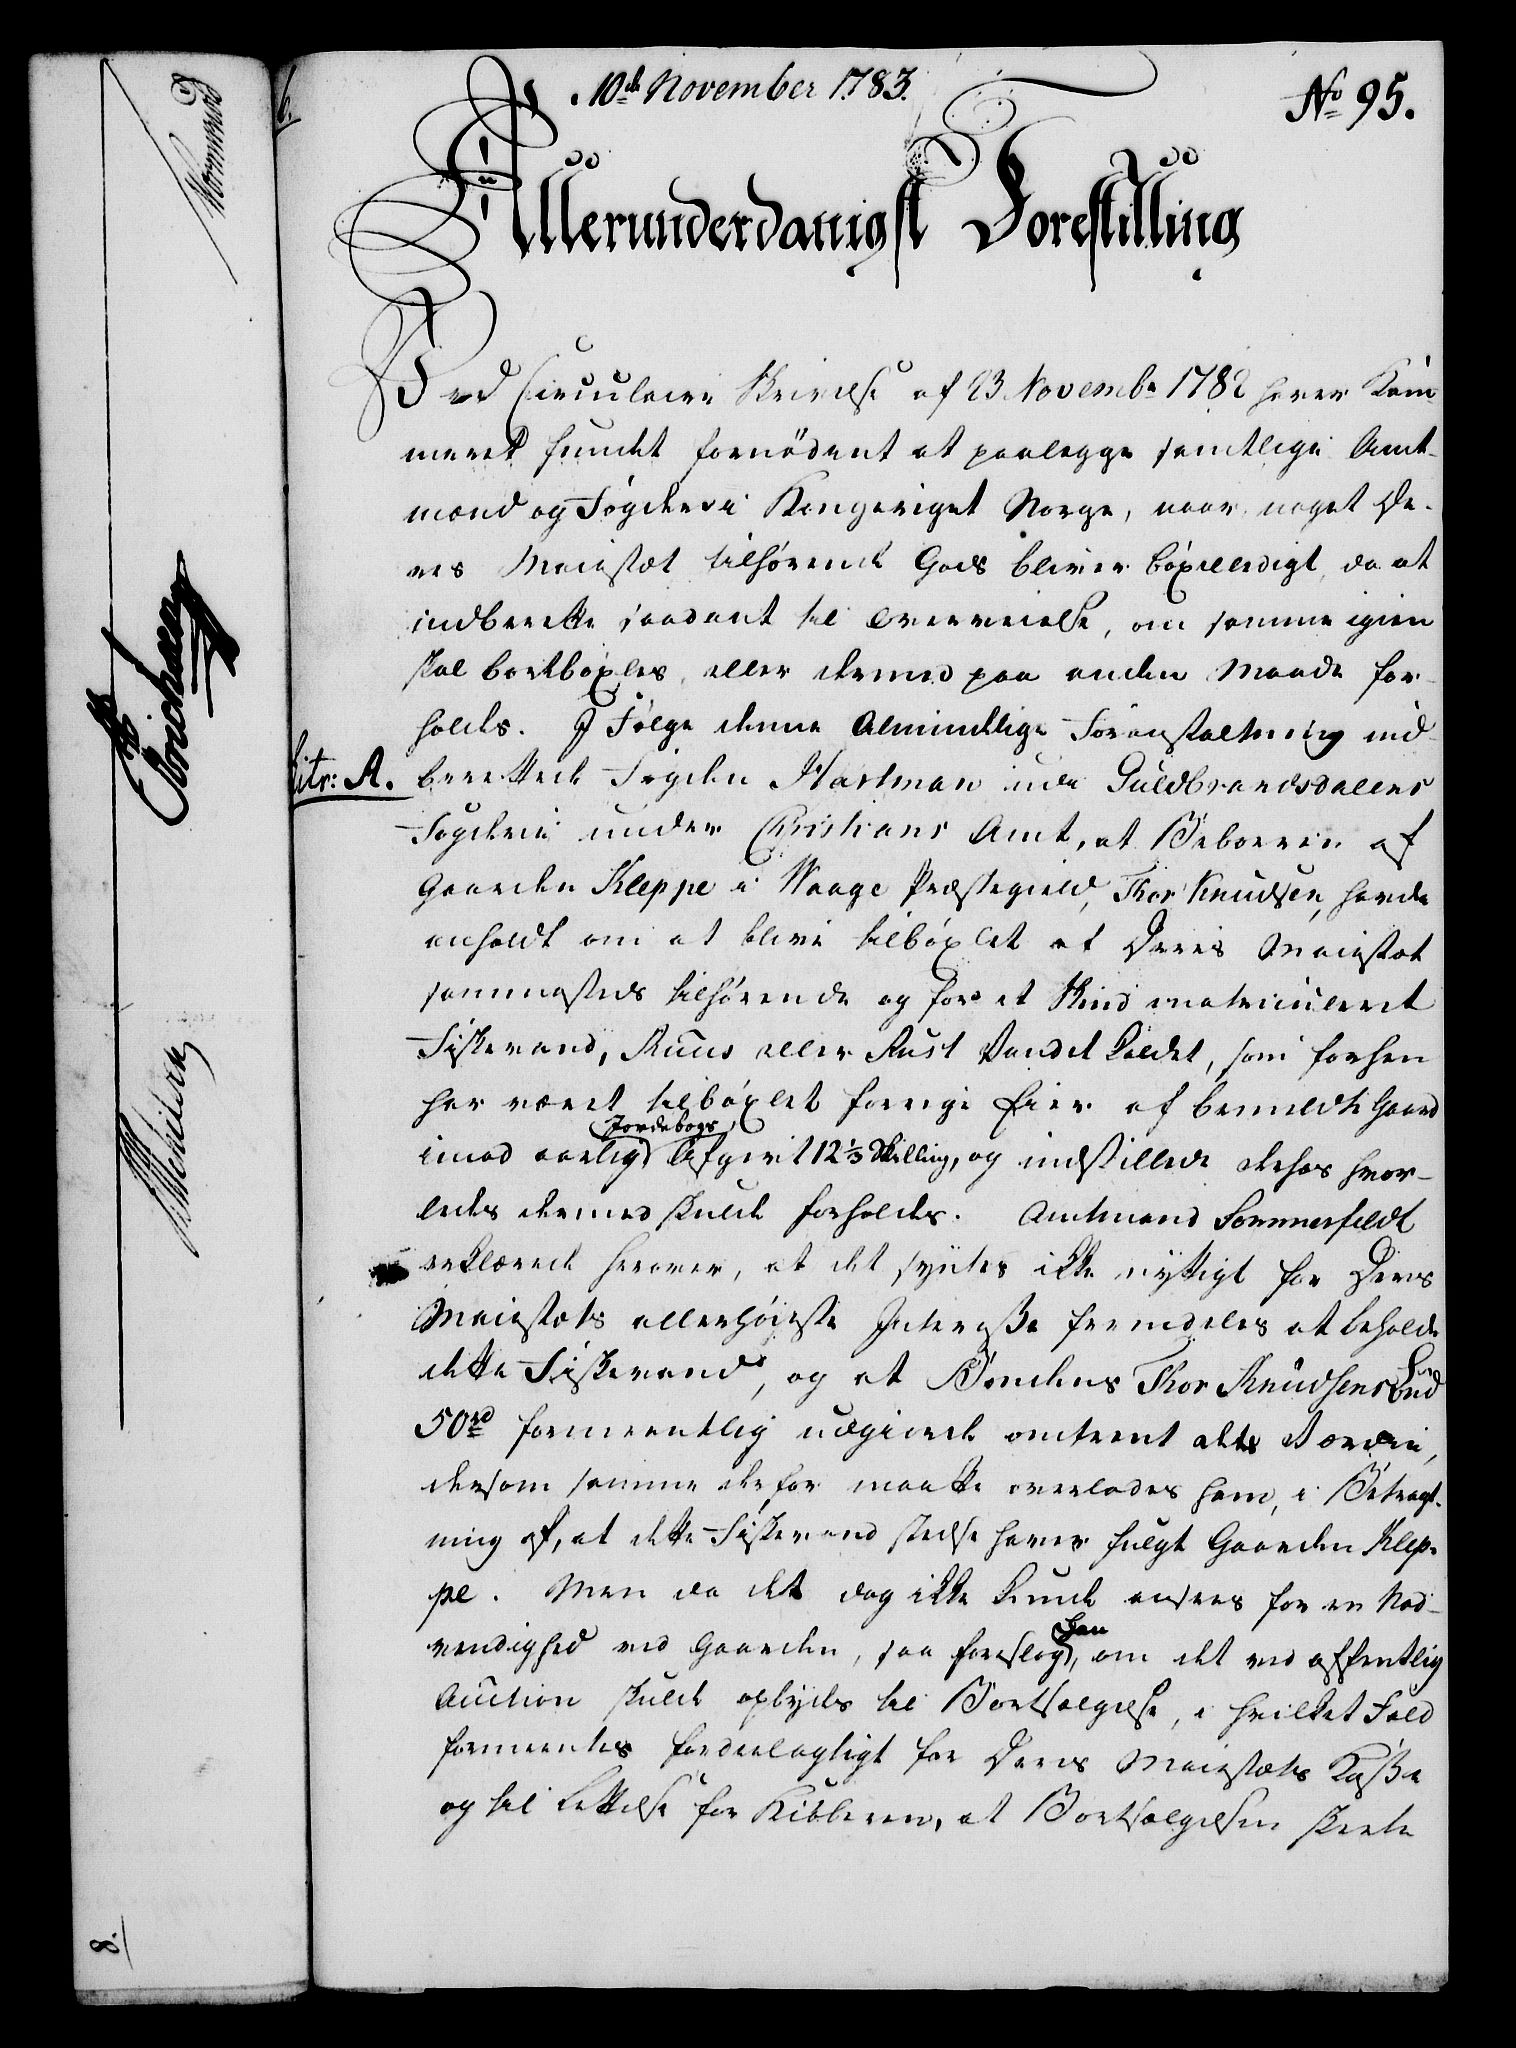 10de November 1783.
No 95.
Allerunderdanigst Forestilling
Ved Circulaire Skrivelse af 23 Novembr 1782 haver Kam
meret fundet fornødent at paalegge samtlige Amt-
mænd og Fogder i Kongeriget Norge, naar noget De-
res Maiestæt tilhørende Gods bliver bøxelledigt, da at
indberette saadant til Overveielse, om samme igien
skal bortbøxles, eller dermed paa anden Maade for-
holdes. I Følge denne Almindelige Foranstaltning ind-
Litr: A.
berettede Fogden Hartman udi Guldbrandsdalens
Fogderie under Christians Amt, at Beboeren af
Gaarden Kleppe i Waage Præstegield, Thor Knudsen, havde
anholdt om at blive tilbøxlet et Deres Maiestæt
sammesteds tilhørende og for et Skind matriculeret
Fiskevand, Ruus eller Rust Vandet kaldet, som forhen
har været tilbøxlet forrige Eier af bemeldte Gaard
imod aarlig Jordebogs Afgivt 12 1/3 Skilling, og indstillede dehos hvor-
ledes dermed skulde forholdes. Amtmand Sommerfeldt
erklærede herover, at det syntes ikke nyttigt for Deres
Maiestæts allerhøieste Interesse fremdeles at beholde
dette Fiskevand, og at Bondens Thor Knudsens Bud
50 rd formeentlig udgiorde omtrent dets Værdie,
dersom samme derfor maatte overlades ham, i Betragt-
ning af, at dette Fiskevand stedse haver fulgt Gaarden Klep-
pe. Men da det dog ikke kunde ansees for en Nød-
vendighed ved Gaarden, saa foreslog han, om det ved offentlig
Auction skulde opbydes til Bortsælgelse, i hvilket Fald
formeentes fordeelagtigt for Deres Maiestæts Kasse
og til Lettelse for Kiøberen, at Bortsælgelsen skeete
8.